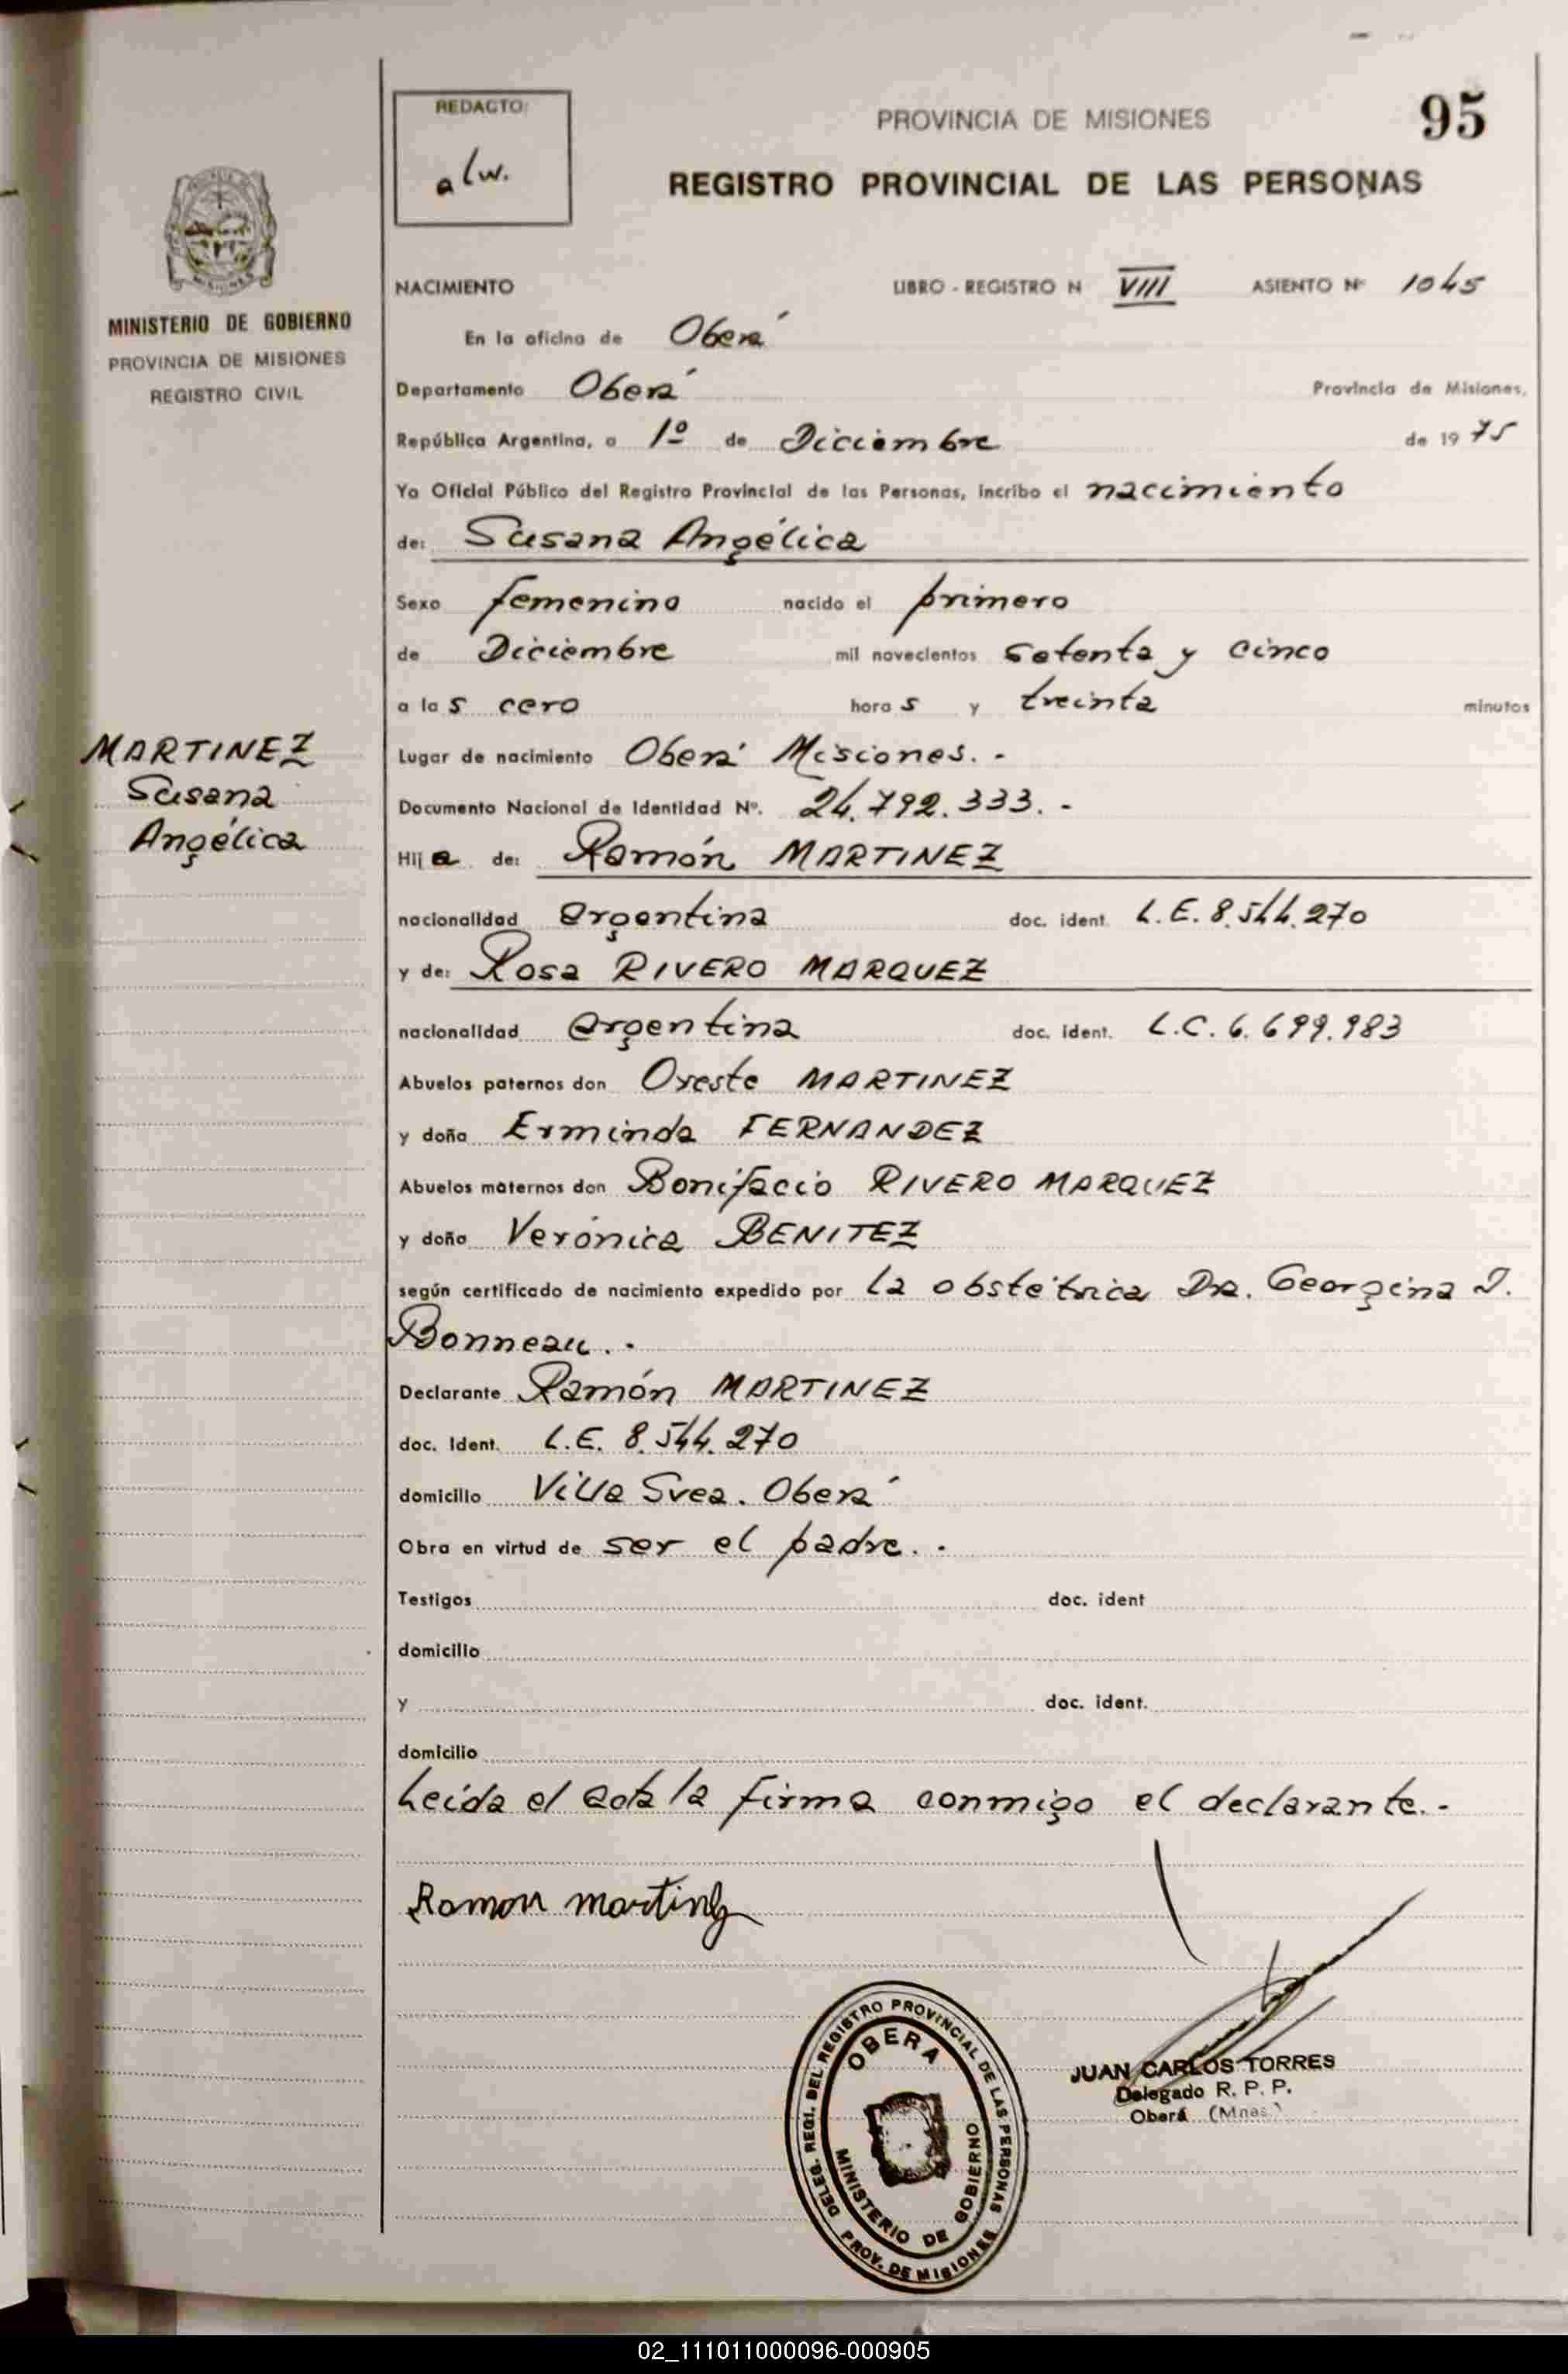 REDACTO
alw.
PROVINCIA DE MISIONES
95
REGISTRO PROVINCIAL DE LAS PERSONAS
MISIONES
MINISTERIO DE GOBIERNO
PROVINCIA DE MISIONES
REGISTRO CIVIL
NACIMIENTO LIBRO - REGISTRO N VIII ASIENTO Nº 1045
En la oficina de Oberá
Departamento Oberá Provincia de Misiones,
República Argentina, a 1º de Diciembre de 1975
Yo Oficial Público del Registro Provincial de las Personas, incribo el nacimiento
de: Susana Angélica
Sexo femenino nacido el primero
de Diciembre mil novecientos setenta y cinco
a las cero horas y treinta minutos
MARTINEZ
Susana
Angélica
Lugar de nacimiento Oberá Misiones. -
Documento Nacional de Identidad Nº. 24.792.333. -
Hija de: Ramón MARTINEZ
nacionalidad argentina doc. ident. L.E. 8.544.270
y de: Rosa RIVERO MARQUEZ
nacionalidad argentina doc. ident. L.C. 6.699.983
Abuelos paternos don Oreste MARTINEZ
y doña Erminda FERNANDEZ
Abuelos maternos don Bonifacio RIVERO MARQUEZ
y doña Verónica BENITEZ
según certificado de nacimiento expedido por la obstétrica Dra. Georgina I.
Bonneau. -
Declarante Ramón MARTINEZ
doc. Ident. L.E. 8.544.270
domicilio Villa Svea. Oberá
Obra en virtud de ser el padre. -
Testigos doc. ident
domicilio
y doc. ident.
domicilio
Leída el acta la firma conmigo el declarante. -
Ramon Martinez
DELEG. REGI. DEL REGISTRO PROVINCIAL DE LAS PERSONAS
OBERA
MINISTERIO DE GOBIERNO
PROV. DE MISIONES
JUAN CARLOS TORRES
Delegado R. P. P.
Oberá (Mnes.)
02_111011000096-000905